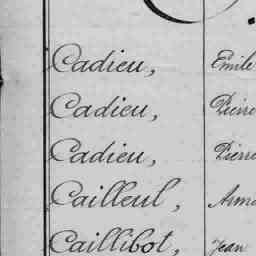 Cadieu, Emile
Cadieu, Pierre
Cadieu, Pierre
Cailleul,
Caillibot, Jean